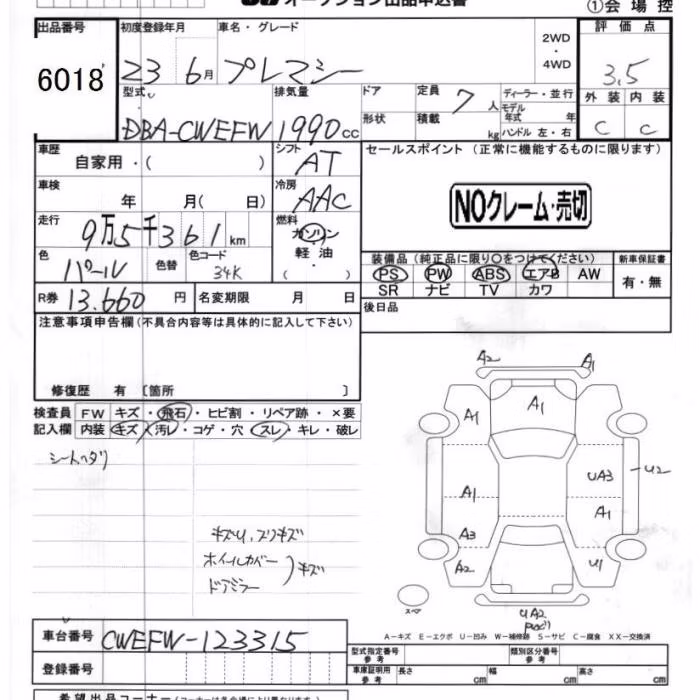 オークション出品申込書
①会場控
出品番号 初度登録年月 車名・グレード 2WD・4WD 評価点
6018 23 6月 プレマシー 3.5
型式 排気量 ドア 定員 7人 ディーラー・並行 外装 内装
形状 積載 kg モデル年式 年 ハンドル 左・右
DBA-CWEFW 1990cc C C
車歴 自家用・( ) シフト AT セールスポイント (正常に機能するものに限ります)
車検 年 月( 日) 冷房 AAC
NOクレーム・売切
走行 9万5千361km 燃料 ガソリン・軽油・( )
色 パール 色替 色コード 34K
装備品 (純正品に限り○をつけてください) 新車保証書
PS PW ABS エアB AW 有・無
SR ナビ TV カワ
R券 13.660円 名変期限 月 日 後日品
注意事項申告欄(不具合内容等は具体的に記入して下さい)
修復歴 有 〔箇所 〕
検査員 FW キズ・飛石・ヒビ割・リペア跡・×要
記入欄 内装 キズ・汚レ・コゲ・穴・スレ・キレ・破レ
シートヘタリ
キズU、スリキズ
ホイールカバー
ドアミラー
キズ
A2 A1
A1 A1
UA3 U2
A1 A1
A3
A2 U1
スペア
UA2
A-キズ E-エクボ U-凹み W-補修跡 S-サビ C-腐食 XX-交換済
車台番号 CWEFW-123315
登録番号
型式指定番号 参考 類別区分番号 参考
車庫証明用 参考 長さ cm 幅 cm 高さ cm
希望出品コーナー